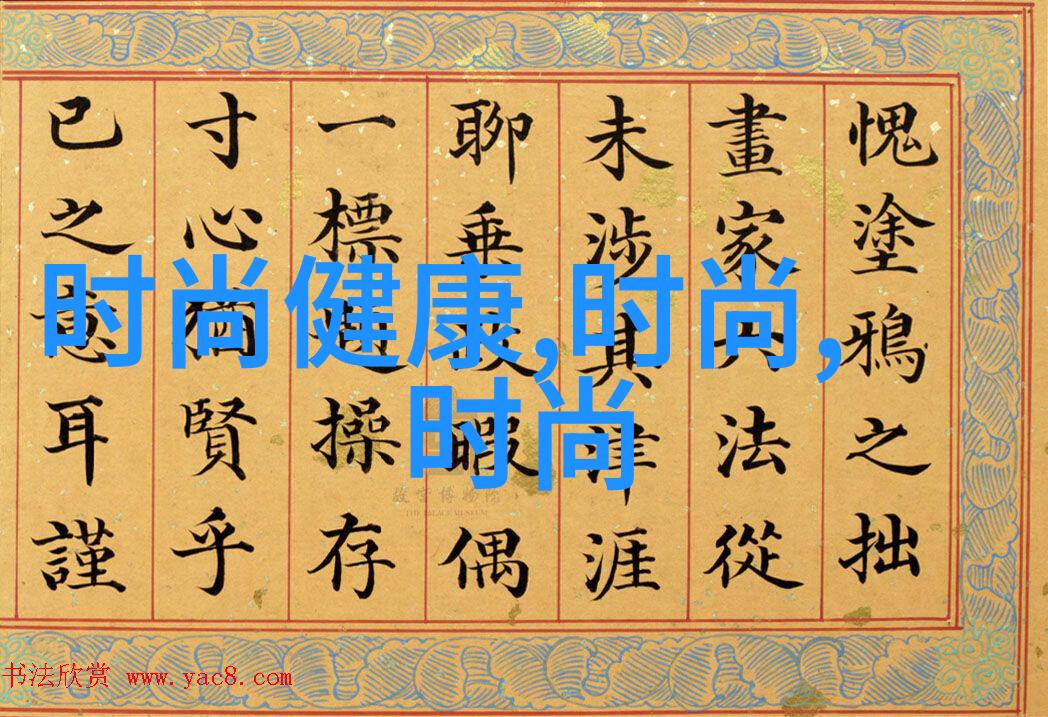 愧塗鴉之拙
畫家六法從
未涉其津涯
聊乘暇偶
一標操存
寸心猶賢乎
已之意耳謹
时尚健康,时尚,
时尚
故宫博物院
THE PALACE MUSEUM
书法欣赏 www.yac8.com